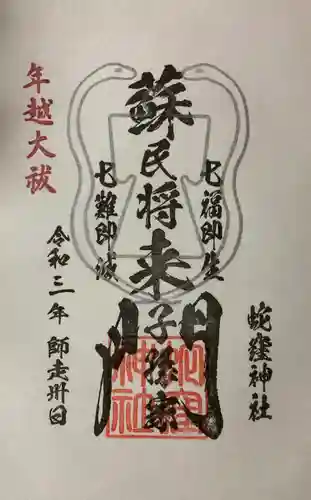 蛇窪神社
七福即生
蘇民将来子孫家門
七難即滅
令和三年 師走卅日
年越大祓
蛇窪
神社